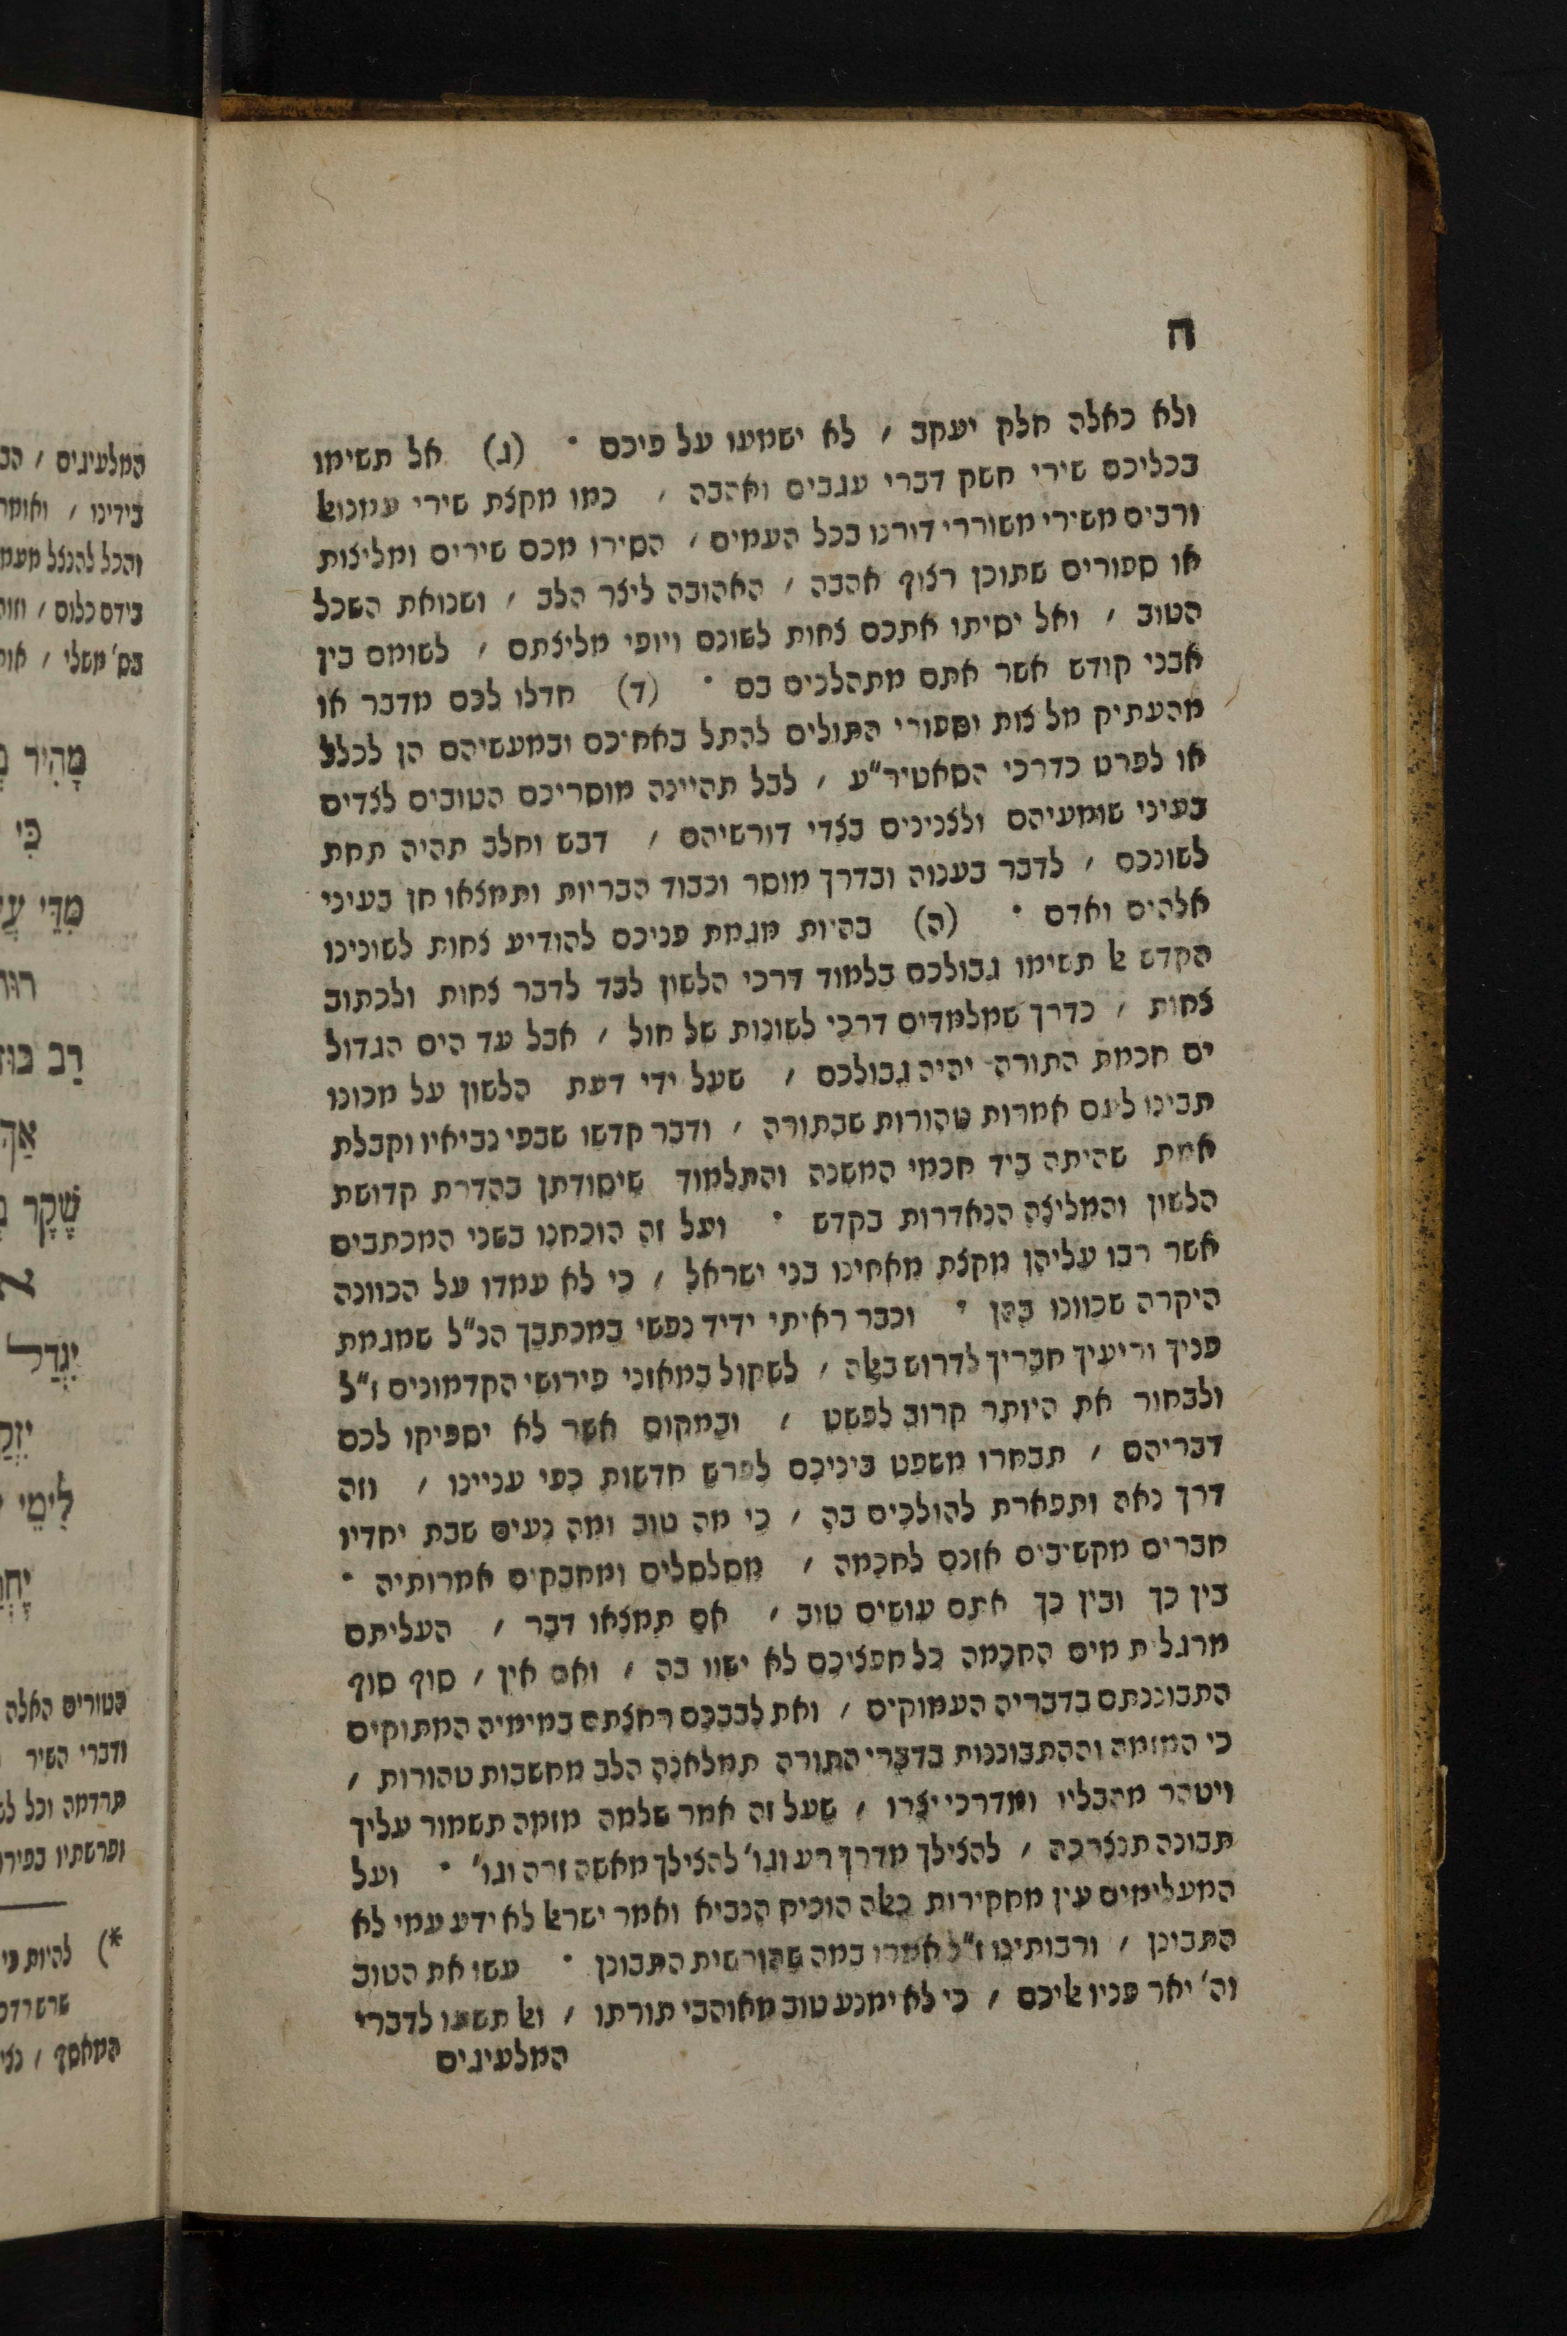 ח
ולא כאלה חלק יעקב / לא ישמעו על פיכם · (ג) אל תשימו
בכליכם שירי חשק דברי עגבים ואהבה / כמו מקצת שירי עמנואל
ורבים משירי משוררי דורנו בכל העמים / הסירו מכם שירים ומליצות
או ספורים שתוכן רצוף אהבה / האהובה ליצר הלב / ושנואת השכל
הטוב / ואל יסיתו אתכם צחות לשונם ויופי מליצתם / לשומם בין
אבני קודש אשר אתם מתהלכים בם · (ד) חדלו לכם מדבר או
מהעתיק מליצות וספורי התולים להתל באחיכם ובמעשיהם הן לכלל
או לפרט כדרכי הסאטיר״ע / לבל תהיינה מוסריכם הטובים לצדים
בעיני שומעיהם ולצנינים בצדי דורשיהם / דבש וחלב תהיה תחת
לשונכם / לדבר בענוה ובדרך מוסר וכבוד הבריות ותמצאו חן בעיני
אלהים ואדם · (ה) בהיות מגמת פניכם להודיע צחות לשונינו
הקדש אל תשימו גבולכם בלמוד דרכי הלשון לבד לדבר צחות ולכתוב
צחות / כדרך שמלמדים דרכי לשונות של חול / אבל עד הים הגדול
ים חכמת התורה יהיה גבולכם / שעל ידי דעת הלשון על מכונו
תבינו לינם אמרות טהורות שבתורה / ודבר קדשו שבפי נביאיו וקבלת
אמת שהיתה ביד חכמי המשנה והתלמוד שיסודתן בהדרת קדושת
הלשון והמליצה הנאדרות בקדש · ועל זה הוכחנו בשני המכתבים
אשר רבו עליהן מקצת מאחינו בני ישראל / כי לא עמדו על הכוונה
היקרה שכווננו בהן · וכבר ראיתי ידיד נפשי במכתבך הנ״ל שמגמת
פניך וריעיך חבריך לדרוש באלה / לשקול במאזני פירושי הקדמונים ז״ל
ולבחור את היותר קרוב לפשט / ובמקום אשר לא יספיקו לכם
דבריהם / תבחרו משפט ביניכם לפרש חדשות כפי ענייננו / וזה
דרך נאה ותפארת להולכים בה / כי מה טוב ומה נעים שבת יחדיו
חברים מקשיבים אזנם לחכמה / מסלסלים ומחבקים אמרותיה ·
בין כך ובין כך אתם עושים טוב / אם תמצאו דבר / העליתם
מרגלית מים החכמה כל חפציכם לא ישוו בה / ואם אין / סוף סוף
התבוננתם בדבריה העמוקים / ואת לבבכם רחצתם במימיה המתוקים
כי המזמה וההתבוננות בדברי התורה תמלאנה הלב מחשבות טהורות /
ויטהר מהבליו ומדרכי יצרו / שעל זה אמר שלמה מזמה תשמור עליך
תבונה תנצרכה / להצילך מדרך רע וגו׳ להצילך מאשה זרה וגו׳ · ועל
המעלימים עין מחקירות כאלה הוכיח הנביא ואמר ישראל לא ידע עמי לא
התבונן / ורבותינו ז״ל אמרו במה שהורשית התבונן · עשו את הטוב
וה׳ יאר פניו אליכם / כי לא ימנע טוב מאוהבי תורתו / ואל תשעו לדברי
המלעיגים
המלעיגים / הב
בידינו / ואומר
והכל להנצל מעמ
בידם כלום / וזה
בס׳ משלי / אות
מָהִיר
כִּי
מִדֵּי
רוּחַ
רַב
אַךְ
שֶׁקֶר
יִגְדַּל
לִימֵי
בטורים האלה
ודברי השיר
תרדמה וכל
ופרשתיו בפירו
*) להיות
המאסף /